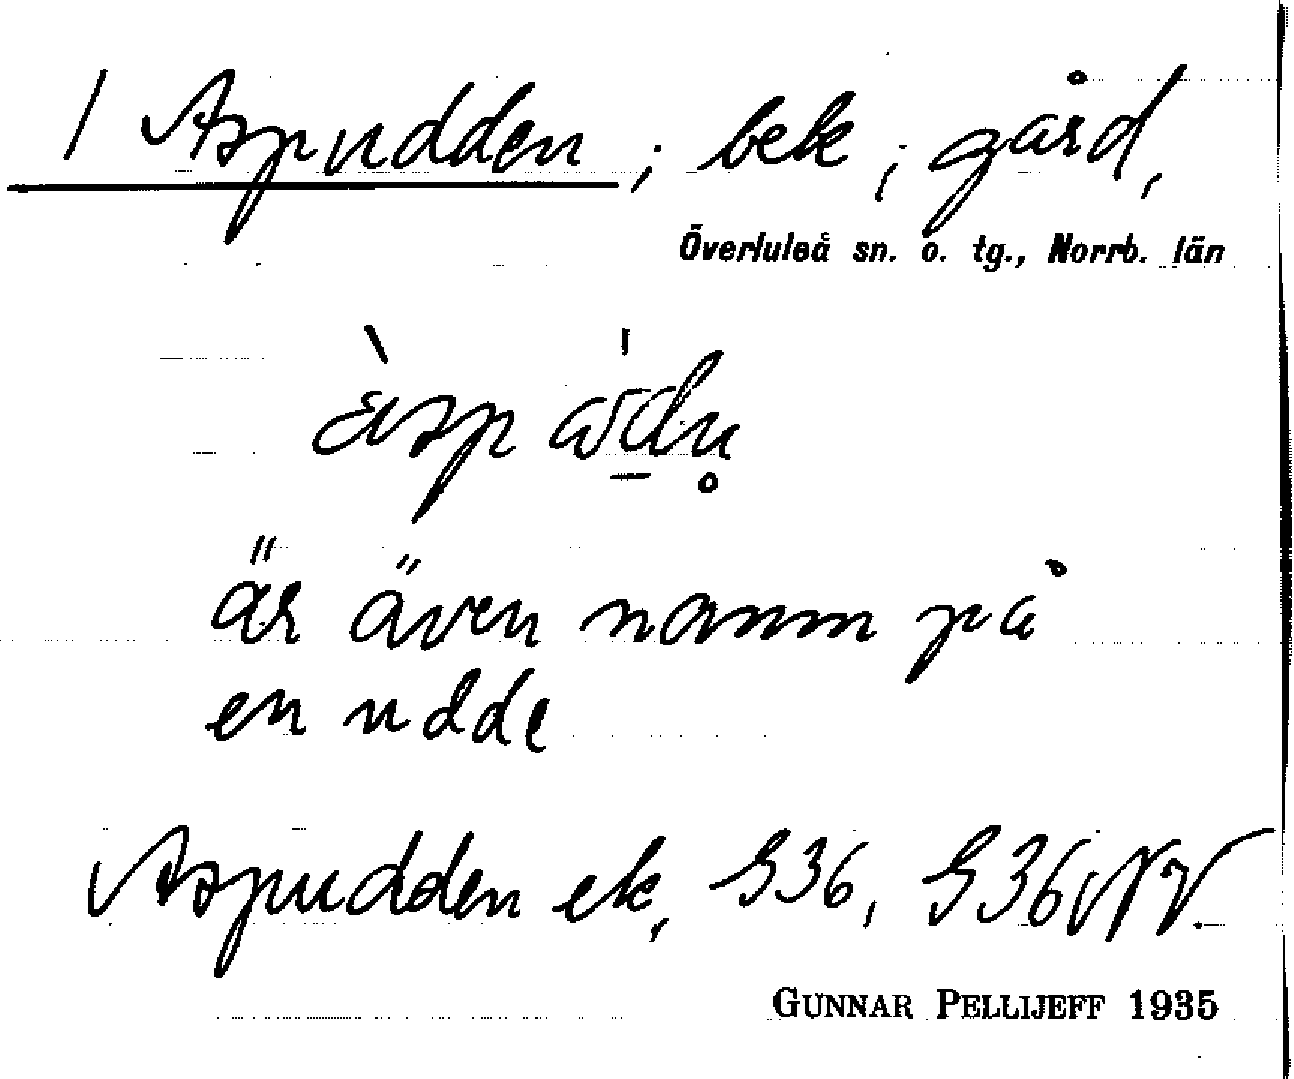 1 Aspudden; bek; gård,
Överluleå sn. o. tg., Norrb. län
är även namn på
en udde
Aspudden ek, G36, G36NV.
GUNNAR PELLIJEFF 1935